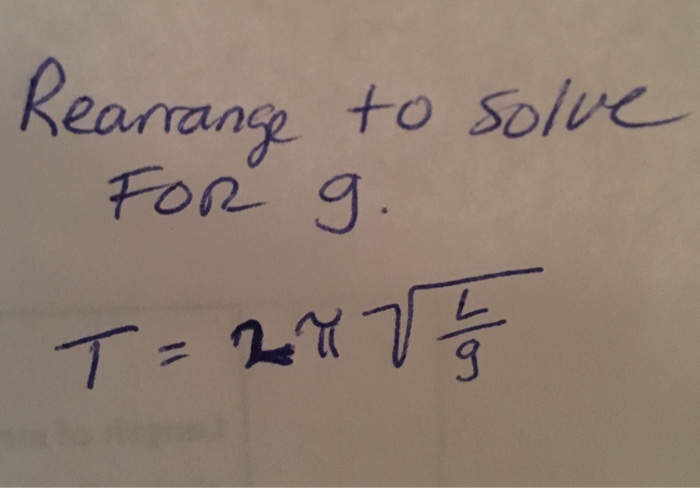 Rearrange to solve
FOR g.
T = 2π √(L/g)